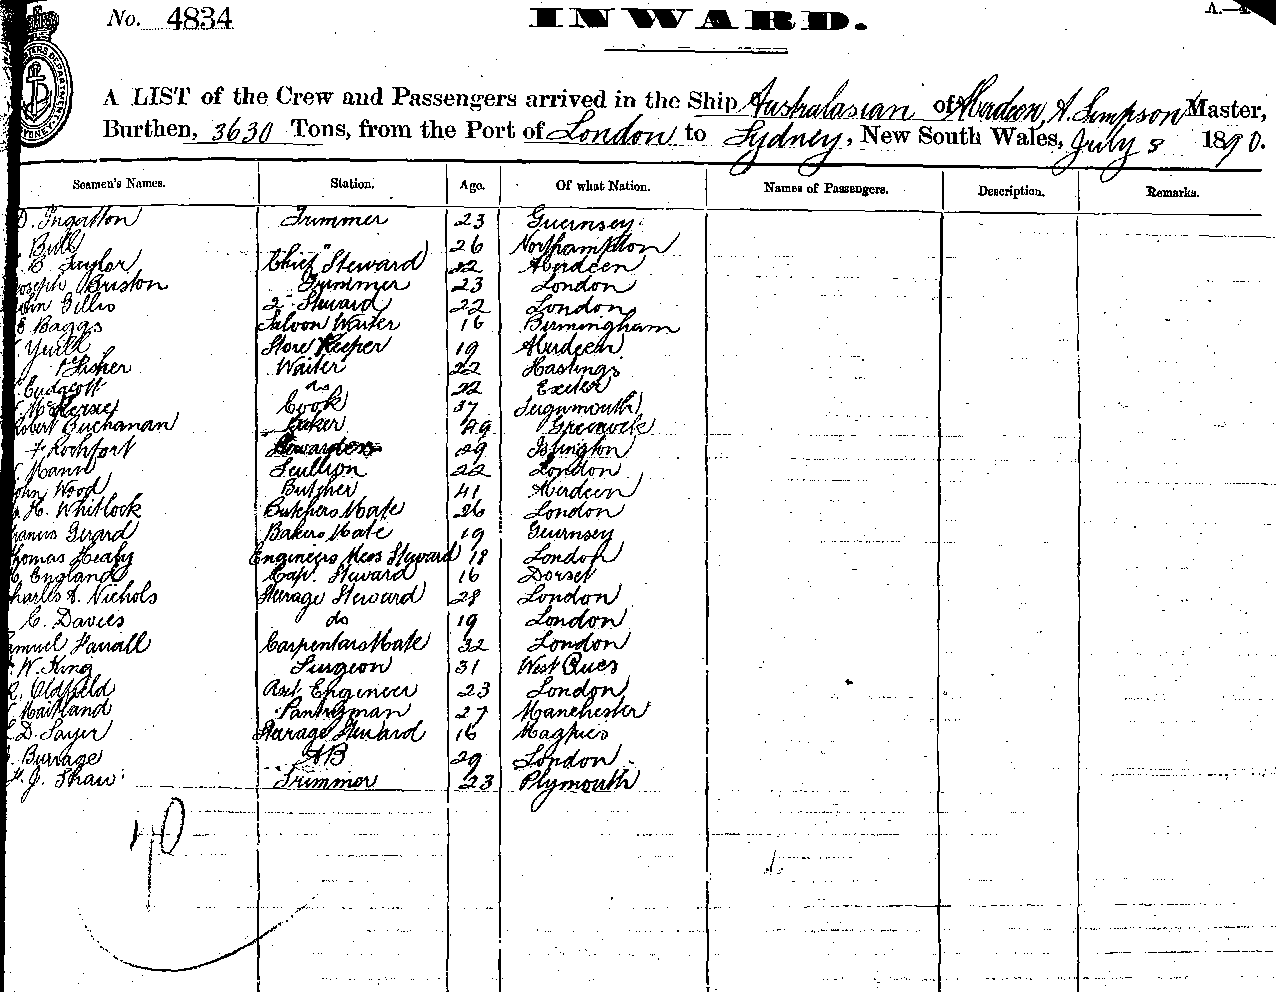 No. 4834
INWARD.
A LIST of the Crew and Passengers arrived in the Ship Australasian of Aberdeen, A. Simpson Master,
Burthen, 3630 Tons, from the Port of London to Sydney, New South Wales, July 8 1890.
Seamen's Names. Station. Age. Of what Nation. Names of Passengers. Description. Remarks.
D. Ingatton Trimmer 23 Guernsey
Bull " 26 Northampton
E Taylor Chief Steward 22 Aberdeen
oseph Briston Trimmer 23 London
ohn Gillis 2nd Steward 22 London
E Baggs Saloon Waiter 16 Birmingham
Yuill Store Keeper 19 Aberdeen
Fisher Waiter 22 Hastings
Endacott do 22 Exeter
McKersie Cook 37 Teignmouth
Robert Buchanan Baker 29 Greenock
F Rochfort Stewardess 29 Islington
Mann Scullion 22 London
ohn Wood Butcher 41 Aberdeen
H. Whitlock Butchers Mate 26 London
rancis Girard Bakers Mate 19 Guernsey
homas Heafy Engineers Mess Steward 18 London
England Cap. Steward 16 Dorset
harles A. Nichols Sterage Steward 28 London
C. Davies do 19 London
amuel Farrall Carpenters Mate 32 London
W. King Surgeon 31 West
R. Oldfield Asst Engineer 23 London
Maitland Pantryman 27 Manchester
D. Sayer Sterage Steward 16
Burrage AB 29 London
J. Shaw Trimmer 23 Plymouth
70